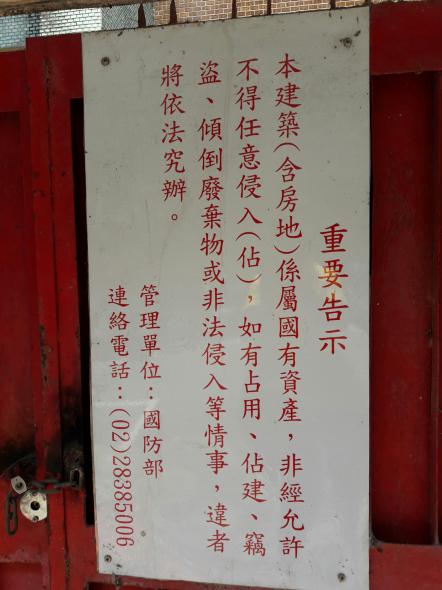 重要告示
本建築(含房地)係屬國有資產，非經允許
不得任意侵入(佔)，如有占用、佔建、竊
盜、傾倒廢棄物或非法侵入等情事，違者
將依法究辦。
管理單位：國防部
連絡電話：(02)28385006